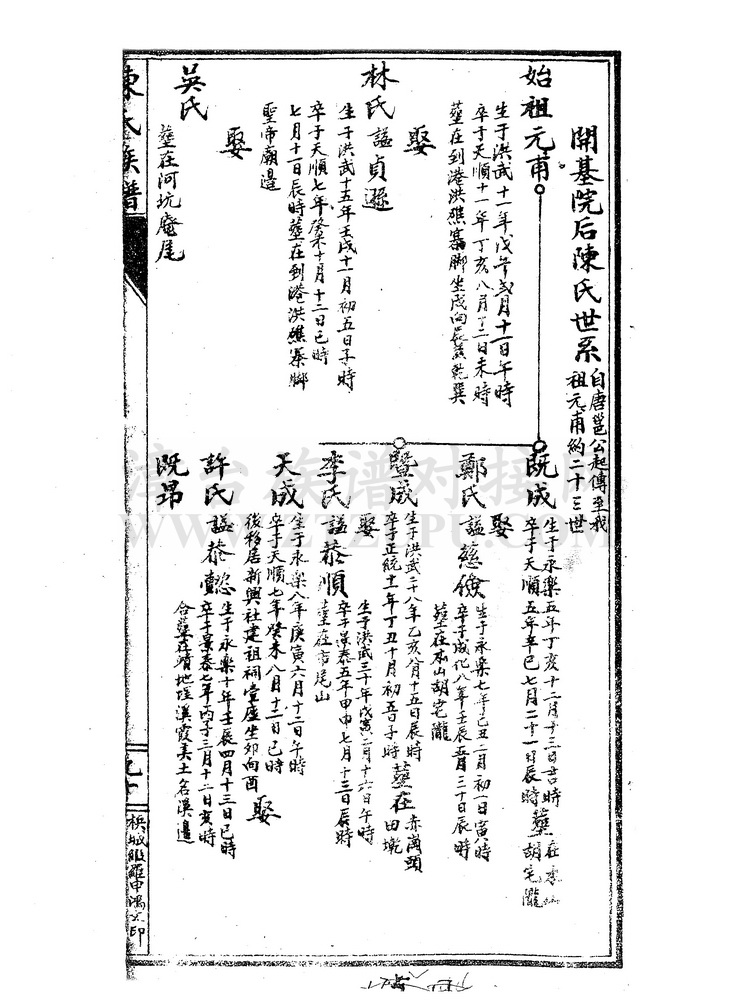 開基院后陳氏世系
自唐邕公起傳至我
祖元甫約二十三世
始祖元甫
生于洪武十一年戊午弍月十一日午時
卒于天順十一年丁亥八月十二日未時
塟在到港洪礁寨脚坐戌向辰兼乾巽
娶
林氏 謚貞遜
生于洪武十五年壬戌十一月初五日子時
卒于天順七年癸未十月十二日巳時
七月十一日辰時塟在到港洪礁寨脚
聖帝廟邊
娶
吳氏
塟在河坑庵尾
既成
生于永樂五年丁亥十二月十三日吉時
卒于天順五年辛巳七月二十一日辰時 塟在 胡宅瀧
娶
鄭氏 謚慈儉
生于永樂七年己丑二月初一日寅時
卒于成化八年壬辰五月三十日辰時
塟在本山胡宅瀧
暨成
生于洪武二十八年乙亥八月十五日辰時
卒于正統十一年丁丑十月初五日子時 塟在赤崗頭田墘
娶
李氏 謚恭順
生于洪武三十年戊寅二月十六日午時
卒于景泰五年甲申七月十三日辰時
塟在市尾山
天成
生于永樂八年庚寅六月十二日午時
卒于天順七年癸未八月十二日巳時
後移居新興社建祖祠堂座坐卯向酉
娶
許氏 謚恭懿
生于永樂十年壬辰四月十三日巳時
卒于景泰七年丙子三月十二日亥時
合塟在靖地埕溪霞美土名溪邊
既昂
陳氏族譜
漳台族谱对接
WWW.ZTZUPU.COM